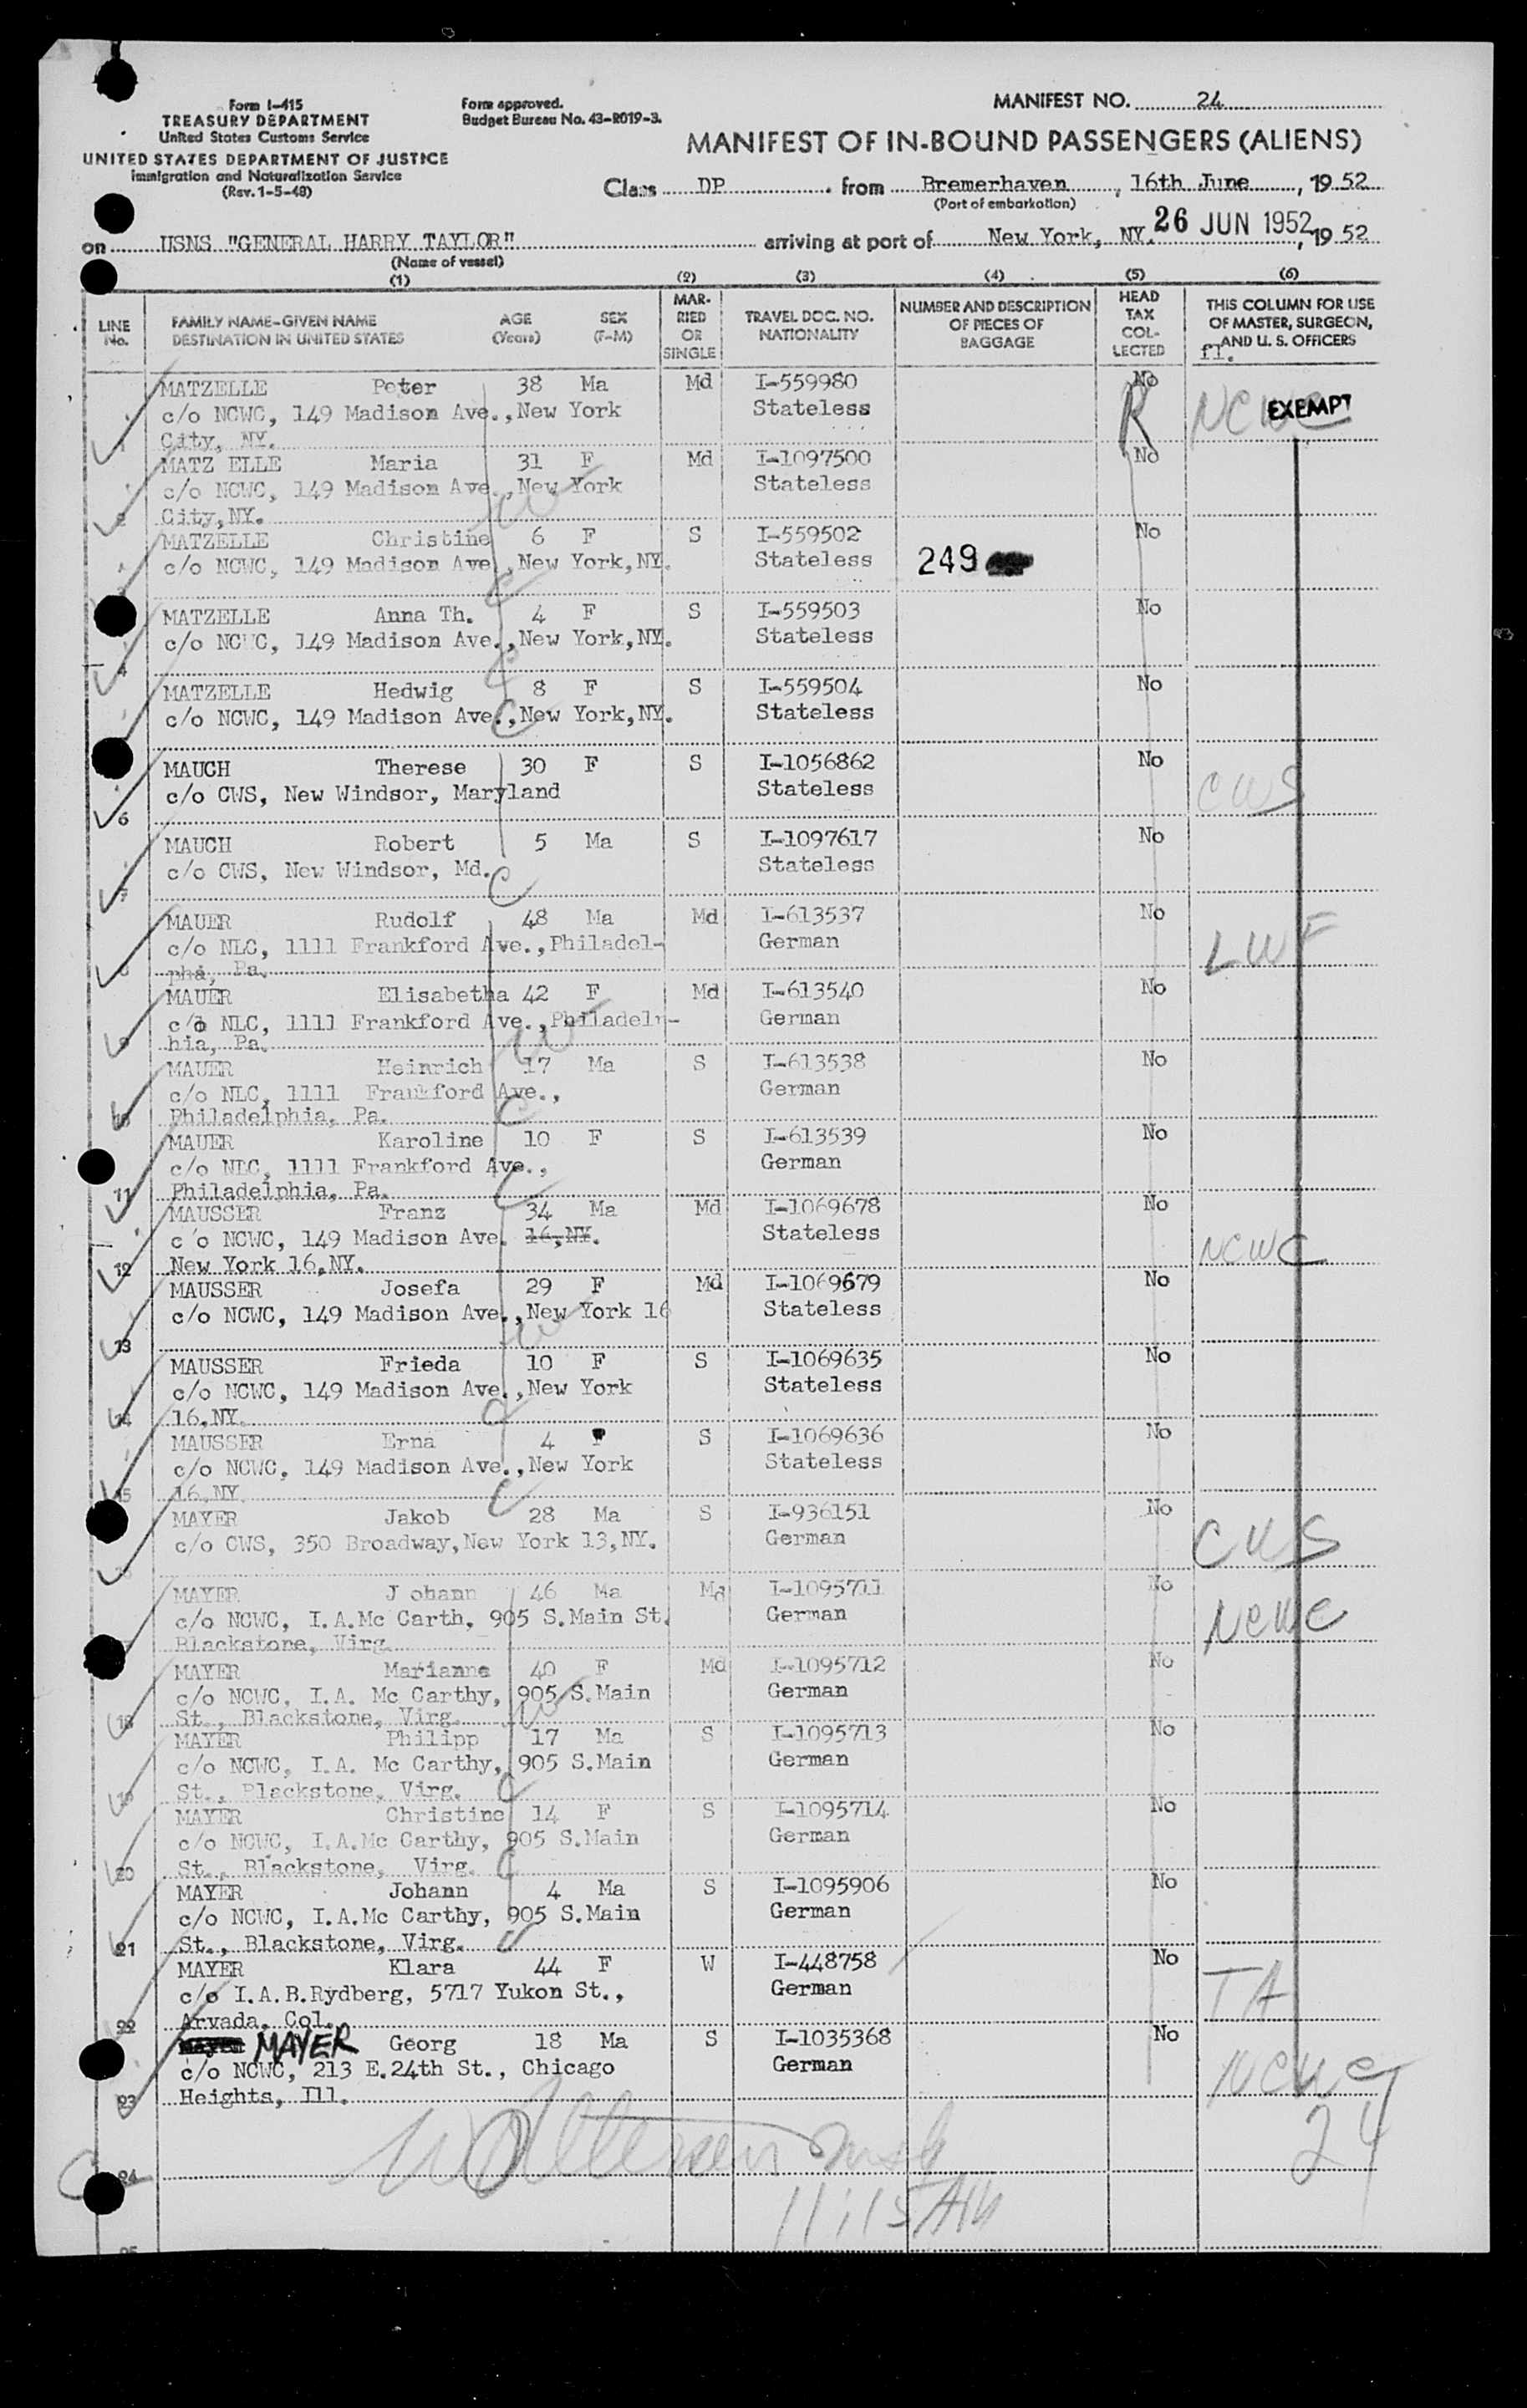 Form I-415
TREASURY DEPARTMENT
United States Customs Service
UNITED STATES DEPARTMENT OF JUSTICE
Immigration and Naturalization Service
(Rev. 1-5-48)
Form approved.
Budget Bureau No. 43-R019-3.
MANIFEST NO. 24
MANIFEST OF IN-BOUND PASSENGERS (ALIENS)
Class DP from Bremerhaven, 16th June, 1952
(Port of embarkation)
on USNS "GENERAL HARRY TAYLOR" arriving at port of New York, NY. 26 JUN 1952, 1952
(Name of vessel)
(1) (2) (3) (4) (5) (6)
LINE No. FAMILY NAME-GIVEN NAME DESTINATION IN UNITED STATES AGE (Years) SEX (F-M) MARRIED OR SINGLE TRAVEL DOC. NO. NATIONALITY NUMBER AND DESCRIPTION OF PIECES OF BAGGAGE HEAD TAX COLLECTED THIS COLUMN FOR USE OF MASTER, SURGEON, AND U. S. OFFICERS
fl.
MATZELLE Peter 38 Ma Md I-559980 No NCWC EXEMPT
c/o NCWC, 149 Madison Ave., New York Stateless R
1 City, NY.
MATZ ELLE Maria 31 F Md I-1097500 No
c/o NCWC, 149 Madison Ave., New York Stateless
2 City, NY. W
MATZELLE Christine 6 F S I-559502 No
c/o NCWC, 149 Madison Ave., New York, NY. Stateless 249
C
MATZELLE Anna Th. 4 F S I-559503 No
c/o NCWC, 149 Madison Ave., New York, NY. Stateless
4 C
MATZELLE Hedwig 8 F S I-559504 No
c/o NCWC, 149 Madison Ave., New York, NY. Stateless
C
MAUCH Therese 30 F S I-1056862 No
c/o CWS, New Windsor, Maryland Stateless CWS
6
MAUCH Robert 5 Ma S I-1097617 No
c/o CWS, New Windsor, Md. Stateless
7 C
MAUER Rudolf 48 Ma Md I-613537 No
c/o NLC, 1111 Frankford Ave., Philadel- German LWF
8 pha, Pa.
MAUER Elisabetha 42 F Md I-613540 No
c/o NLC, 1111 Frankford Ave., Philadelp- German
9 hia, Pa. W
MAUER Heinrich 17 Ma S I-613538 No
c/o NLC, 1111 Frankford Ave., German
10 Philadelphia, Pa. C
MAUER Karoline 10 F S I-613539 No
c/o NLC, 1111 Frankford Ave., German
11 Philadelphia, Pa. C
MAUSSER Franz 34 Ma Md I-1069678 No
c o NCWC, 149 Madison Ave. 16, NY. Stateless NCWC
12 New York 16, NY.
MAUSSER Josefa 29 F Md I-1069679 No
c/o NCWC, 149 Madison Ave., New York 16 Stateless
13 W
MAUSSER Frieda 10 F S I-1069635 No
c/o NCWC, 149 Madison Ave., New York Stateless
14 16, NY. C
MAUSSER Erna 4 F S I-1069636 No
c/o NCWC, 149 Madison Ave., New York Stateless
15 16, NY. C
MAYER Jakob 28 Ma S I-936151 No
c/o CWS, 350 Broadway, New York 13, NY. German CWS
MAYER J ohann 46 Ma Md I-1095711 No
c/o NCWC, I.A.Mc Carth, 905 S.Main St. German NCWC
Blackstone, Virg.
MAYER Marianne 40 F Md I-1095712 No
c/o NCWC, I.A. Mc Carthy, 905 S.Main German
18 St., Blackstone, Virg. W
MAYER Philipp 17 Ma S I-1095713 No
c/o NCWC, I.A. Mc Carthy, 905 S.Main German
19 St., Blackstone, Virg. C
MAYER Christine 14 F S I-1095714 No
c/o NCWC, I.A.Mc Carthy, 905 S.Main German
20 St., Blackstone, Virg. C
MAYER Johann 4 Ma S I-1095906 No
c/o NCWC, I.A.Mc Carthy, 905 S.Main German
21 St., Blackstone, Virg. C
MAYER Klara 44 F W I-448758 No
c/o I.A.B.Rydberg, 5717 Yukon St., German TA
22 Arvada, Col.
MAYER Georg 18 Ma S I-1035368 No
c/o NCWC, 213 E.24th St., Chicago German NCWC
23 Heights, Ill.
24 24
11:15 AM
25